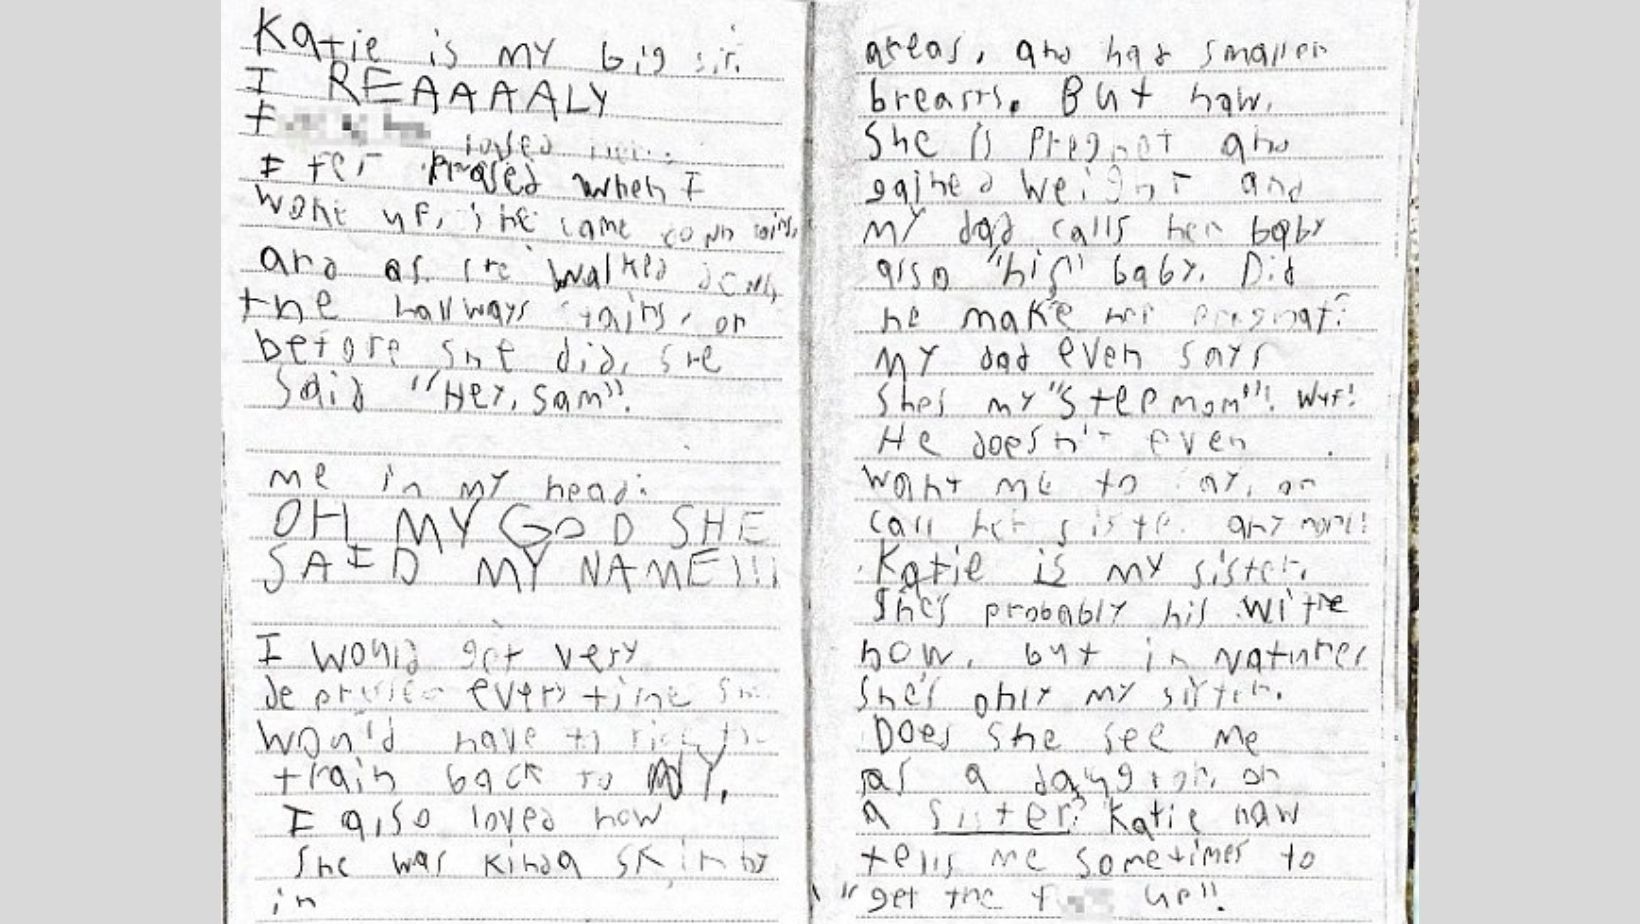 Katie is my big sis.
I REAAAALY
f loved her.
I fel prased when I
woke up, she came down
and as she walked down
the hallways stairs, or
before she did, she
said "Hey, Sam".
me in my head:
OH MY GOD SHE
SAID MY NAME!!!
I would get very
every time she
would have to ride the
train back to NY.
I also loved how
she was kinda skinny
in
areas, and had smaller
breasts. But now,
she is pregnat and
gained weight and
my dad calls her baby
also "his" baby. Did
he make her pregnat?
My dad even says
shes my "stepmom"!
He doesn't even
want me to say, or
call her sister any more!
Katie is my sister.
She's probably his wife
now, but in
she's only my sister.
Does she see me
as a or
a sister? Katie now
tells me sometimes to
"get the f up"!